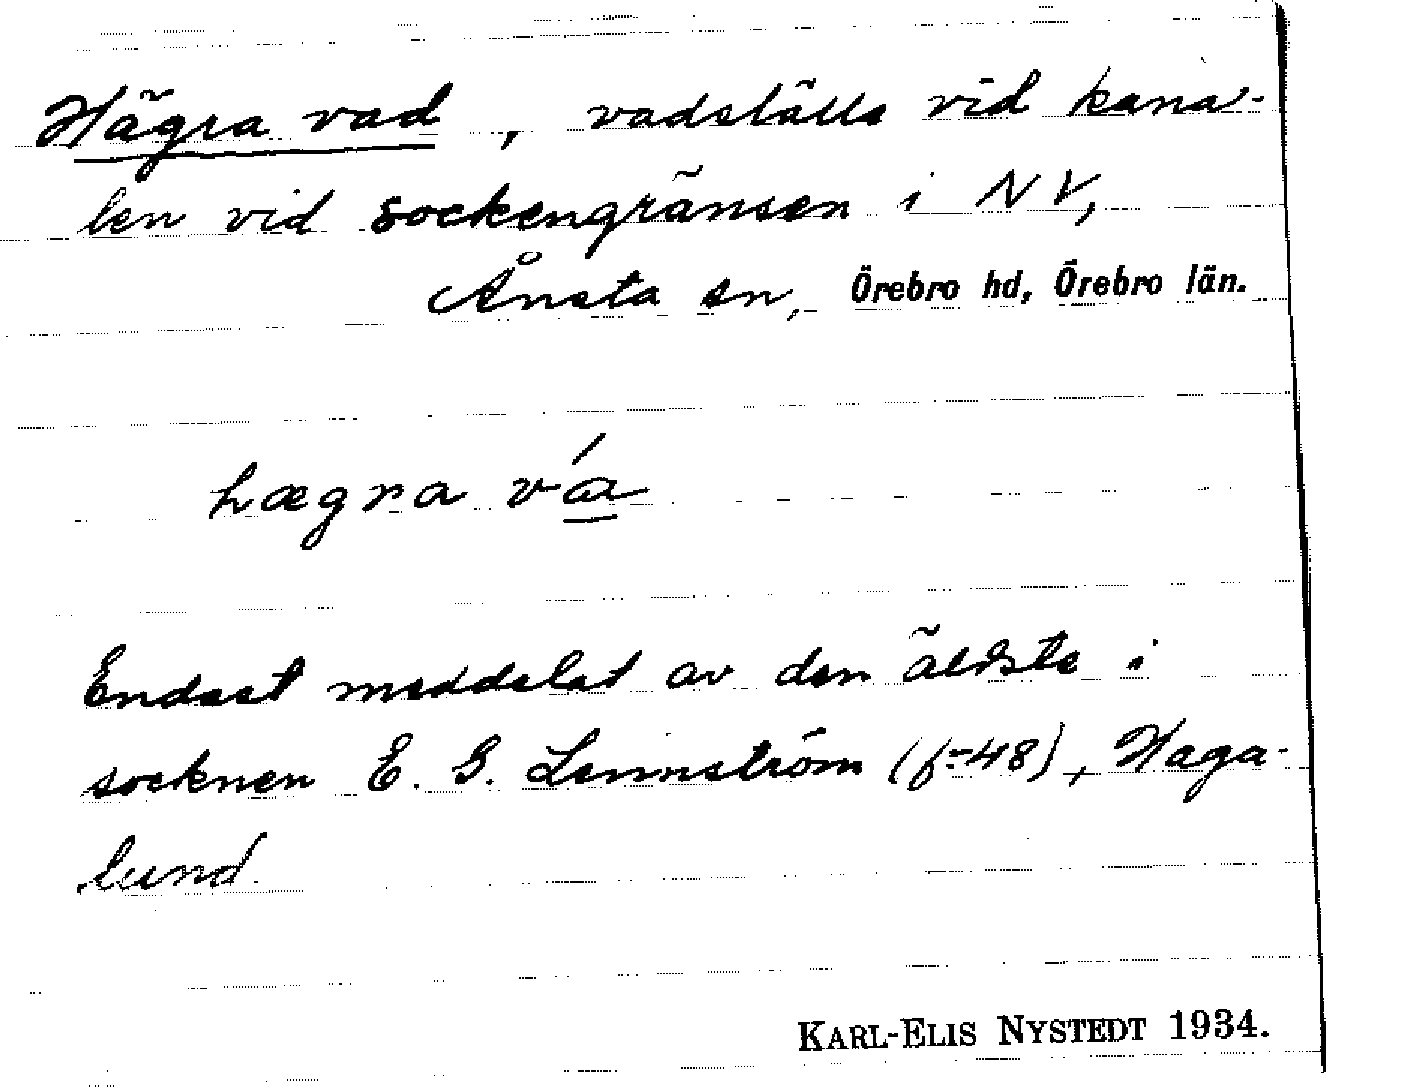 Hägra vad, vadställe vid kana-
len vid sockengränsen i NV,
Ånsta sn, Örebro hd, Örebro län.
hægra vá
Endast meddelat av den äldste i
socknen E. G. Lennström (f-48), Haga-
lund.
KARL-ELIS NYSTEDT 1934.